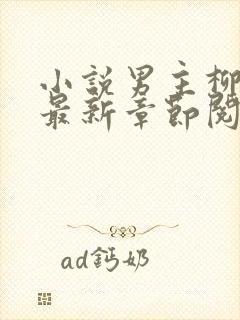 小説男主柳
最新章節閱
ad鈣奶